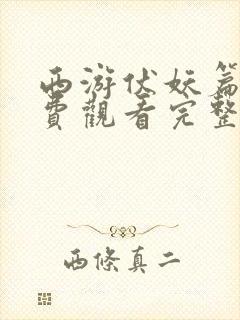 西游伏妖篇
費觀看完整
西條真二